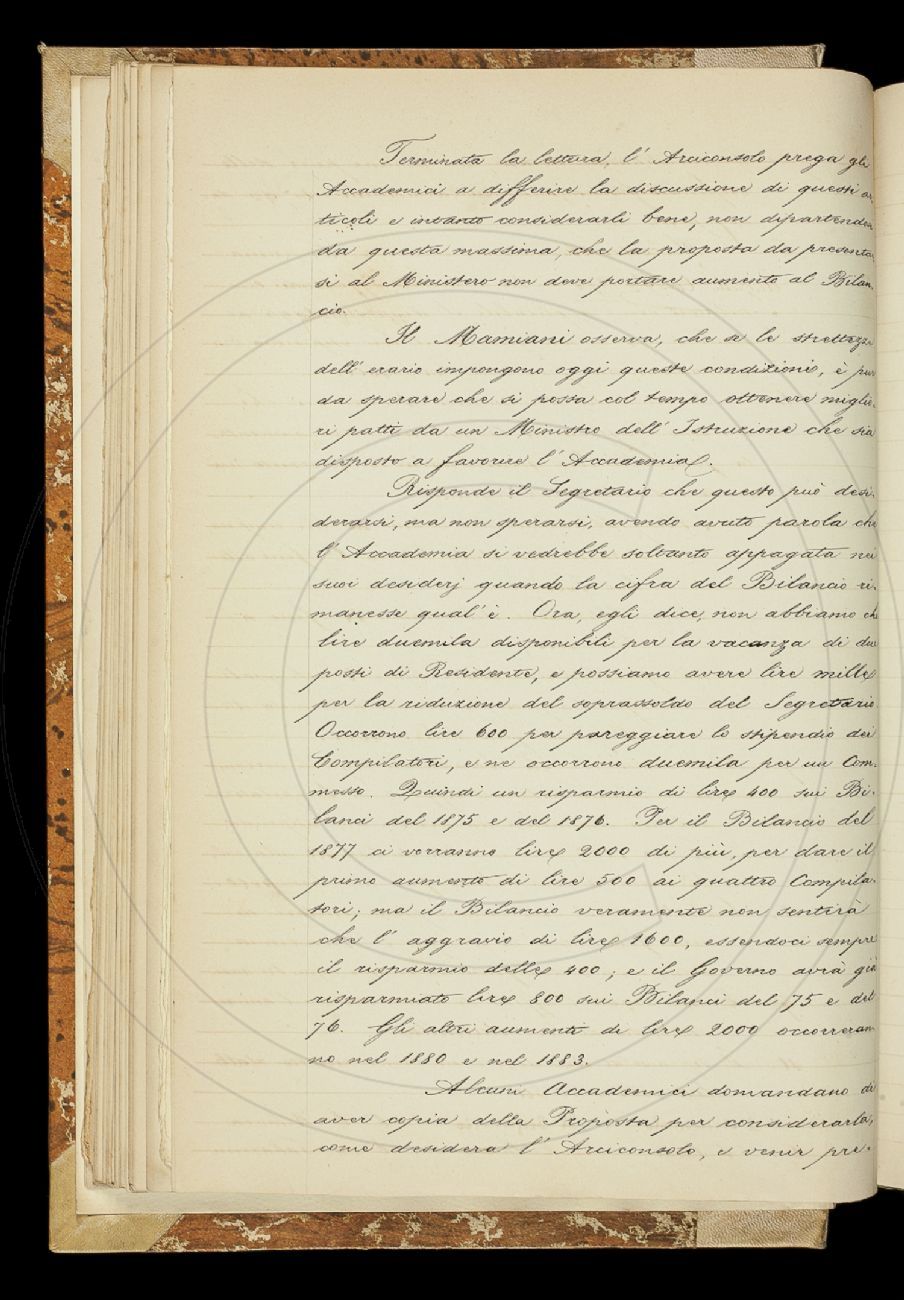 Terminata la lettura, l' Arciconsolo prega gli
Accademici a differire la discussione di questi ar-
ticoli e intanto considerarli bene, non dipartendosi
da questa massima, che la proposta da presentar-
si al Ministero non deve portare aumento al Bilan-
cio.
Il Mamiani osserva, che se le strettezze
dell' erario impongono oggi queste condizioni, è pur
da sperare che si possa col tempo ottenere miglio-
ri patti da un Ministro dell' Istruzione che sia
disposto a favorire l' Accademia.
Risponde il Segretario che questo può desi-
derarsi, ma non sperarsi, avendo avuto parola che
l' Accademia si vedrebbe soltanto appagata nei
suoi desiderj quando la cifra del Bilancio ri-
manesse qual' è. Ora, egli dice, non abbiamo che
lire duemila disponibili per la vacanza di due
posti di Residente, e possiamo avere lire mille
per la riduzione del soprassoldo del Segretario
Occorrono lire 600 per pareggiare lo stipendio dei
Compilatori, e ne occorrono duemila per un Com-
messo. Quindi un risparmio di lire 400 sui Bi-
lanci del 1875 e del 1876. Per il Bilancio del
1877 ci verranno lire 2000 di più, per dare il
primo aumento di lire 500 ai quattro Compila-
tori; ma il Bilancio veramente non sentirà
che l' aggravio di lire 1600, essendoci sempre
il risparmio delle 400; e il Governo avrà già
risparmiato lire 800 sui Bilanci del 75 e del
76. Gli altri aumenti di lire 2000 occorreran-
no nel 1880 e nel 1883.
Alcuni Accademici domandano di
aver copia della Proposta per considerarla,
come desidera l' Arciconsolo, e venir pre-